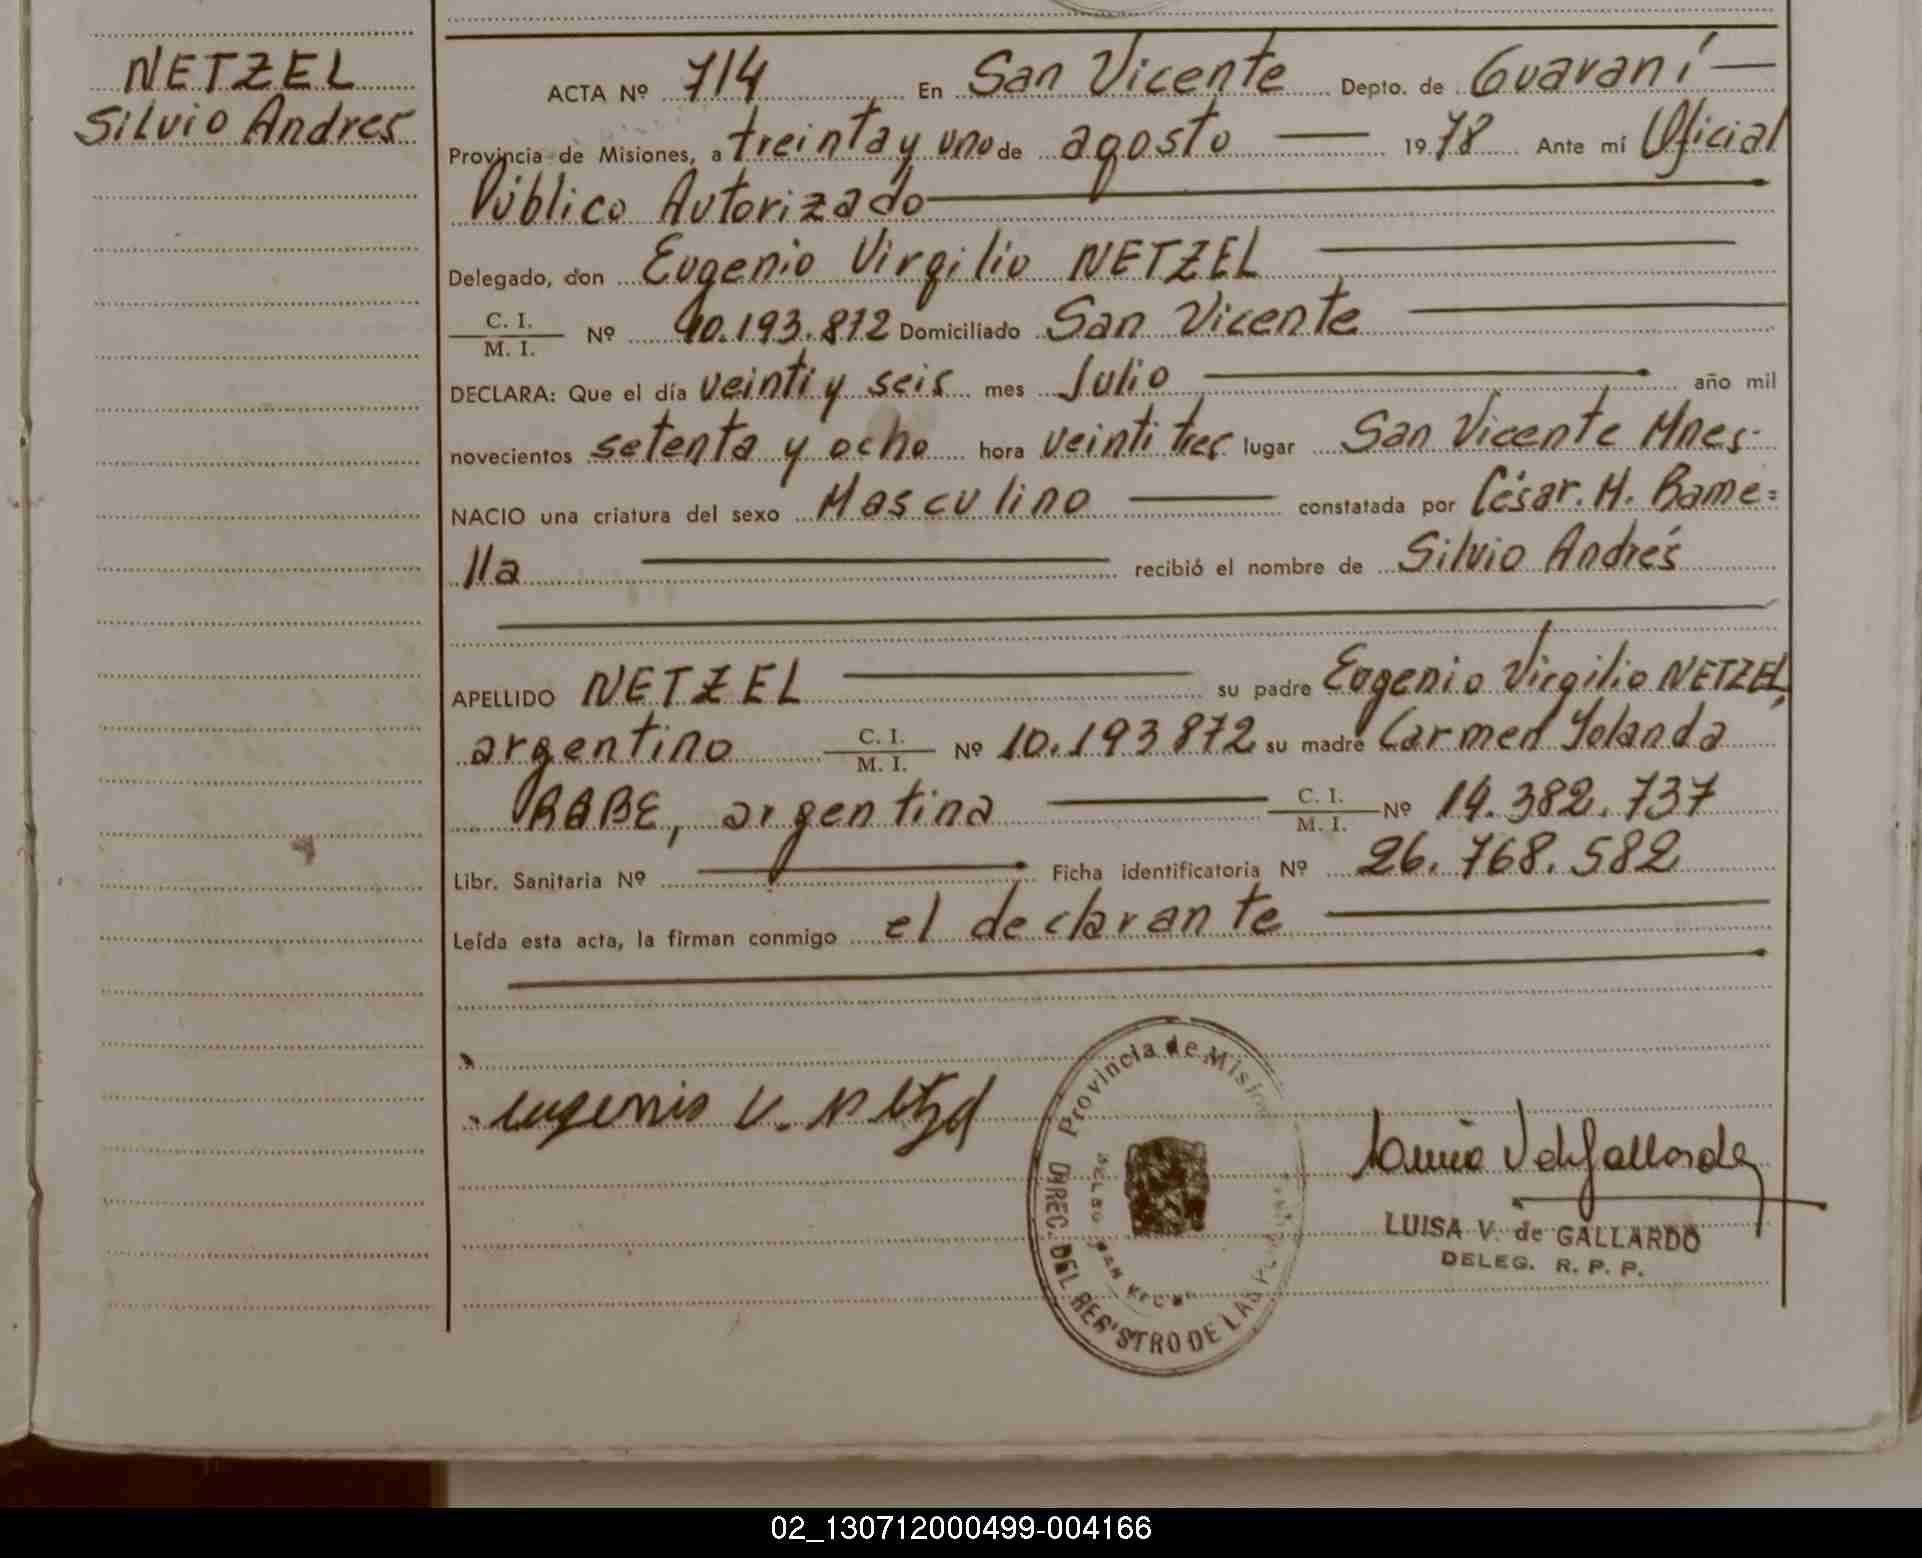 NETZEL
Silvio Andres
ACTA Nº 714 En San Vicente Depto. de Guaraní
Provincia de Misiones, a treinta y uno de agosto 1978 Ante mí Oficial
Público Autorizado
Delegado, don Eugenio Virgilio NETZEL
C. I.
M. I. Nº 10.193.872 Domiciliado San Vicente
DECLARA: Que el día veinti y seis mes Julio año mil
novecientos setenta y ocho hora veintitres lugar San Vicente Mnes.
NACIO una criatura del sexo Masculino constatada por César. M. Bame=
lla recibió el nombre de Silvio Andrés
APELLIDO NETZEL su padre Eugenio Virgilio NETZEL,
argentino C. I. M. I. Nº 10.193872 su madre Carmen Yolanda
RABE, argentina C. I. M. I. Nº 14.382.737
Libr. Sanitaria Nº Ficha identificatoria Nº 26.768.582
Leída esta acta, la firman conmigo el declarante
Provincia de Misiones
DIREC. DEL REGISTRO DE LAS
Eugenio V. Netzel
Luisa V de Gallardo
LUISA V. de GALLARDO
DELEG. R. P. P.
02_130712000499-004166